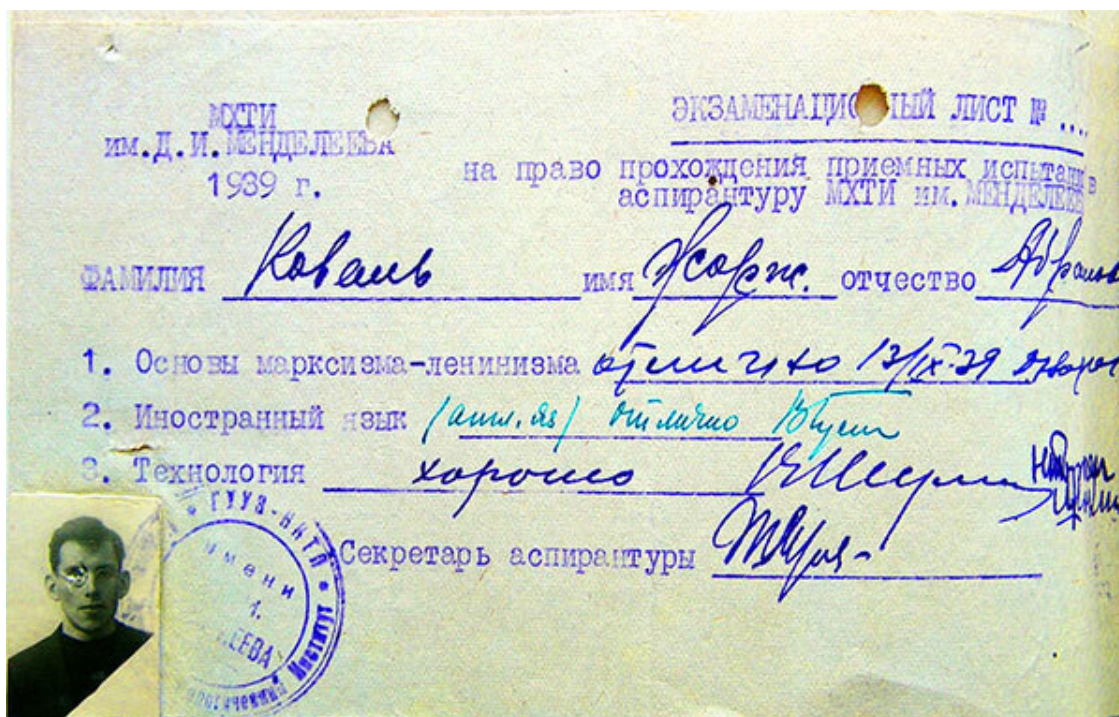 МХТИ
им. Д. И. МЕНДЕЛЕЕВА
1939 г.
ЭКЗАМЕНАЦИОННЫЙ ЛИСТ № ....
на право прохождения приемных испытани в
аспирантуру МХТИ им. МЕНДЕЛЕЕВ
ФАМИЛИЯ Коваль имя Жорж. отчество Абрамов
1. Основы марксизма-ленинизма отлично 13/IX-39
2. Иностранный язык (англ. яз) отлично
3. Технология хорошо
Секретарь аспирантуры
ГУУЗ-НКТП
имени
И.
ЕЕВА
Институт